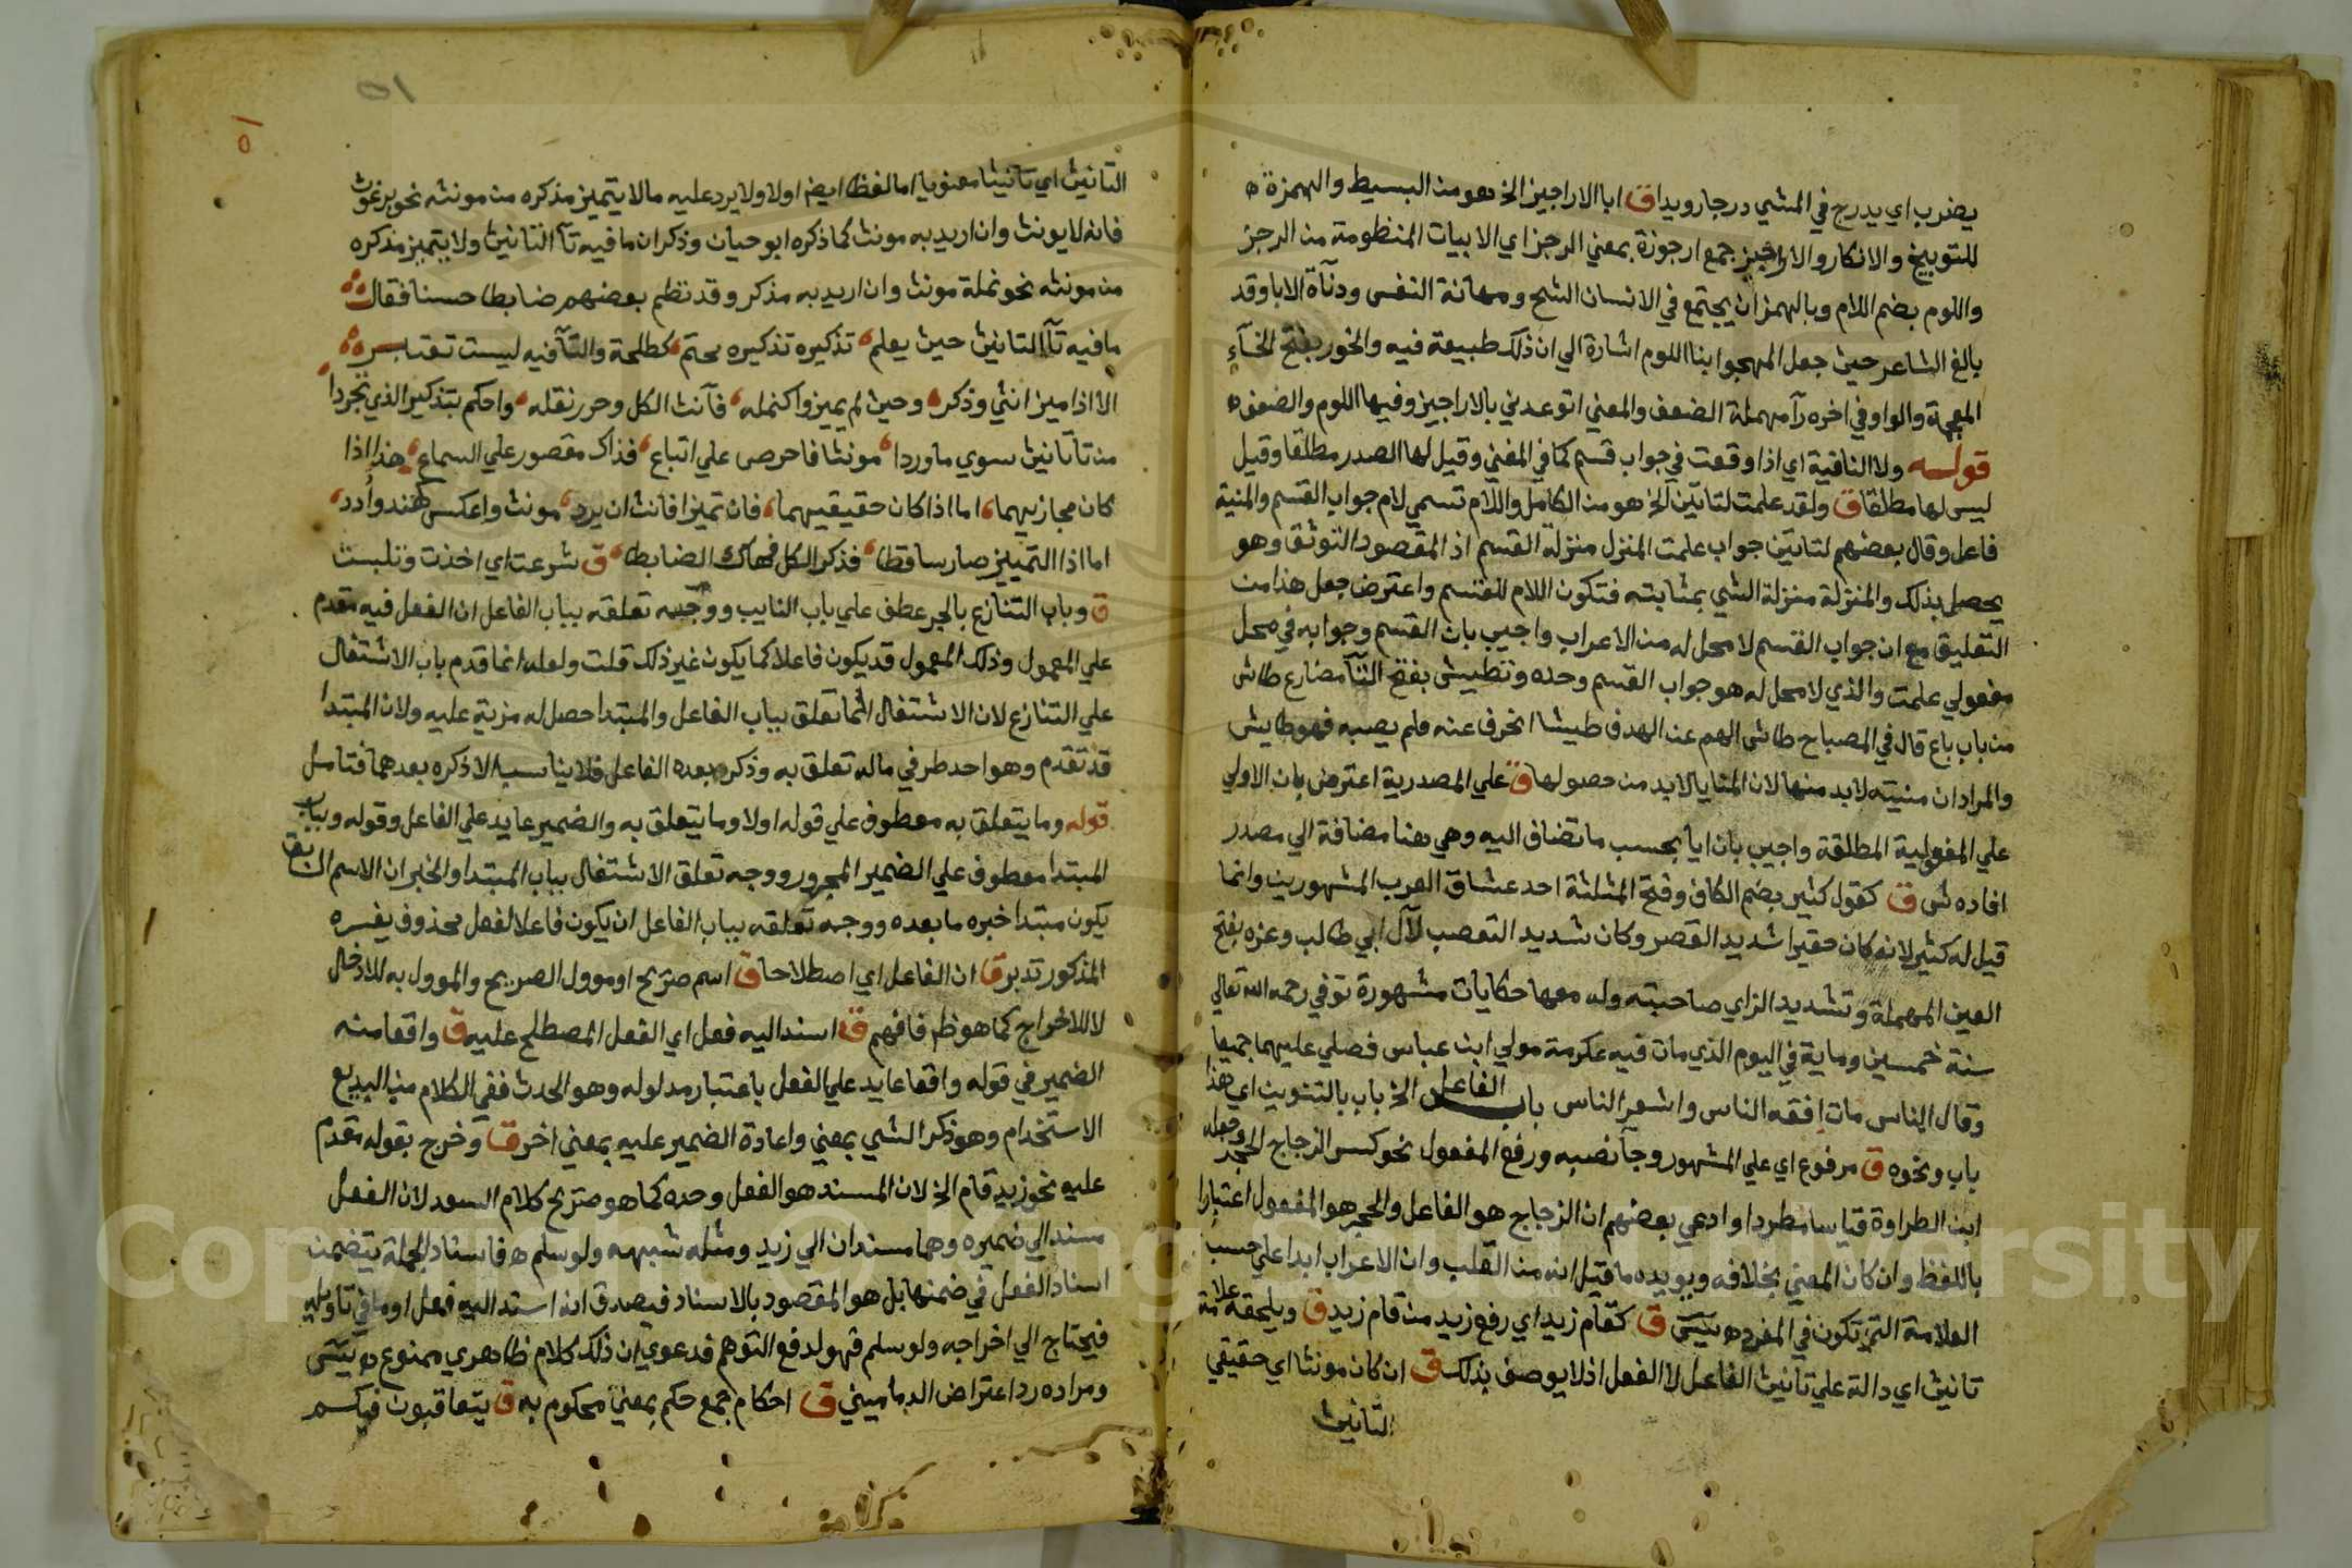 يضرب اي يدرج في المشي درجا رويدا ق ابا الاراجيز الخ هو من البسيط والهمزة ه
للتوبيخ والانكار والاراجيز جمع ارجوزة بمعني الرجز اي الابيات المنظومة من الرجز
واللوم بضم اللام وبالهمز ان يجتمع في الانسان الشح ومهانة النفس ودنآة الابا وقد
بالغ الشاعر حيث جعل المهجوا بنا اللوم اشارة الي ان ذلك طبيعة فيه والخور بفتح الخآء
المعجمة والواو في اخره رآ مهملة الضعف والمعني اتوعدني بالاراجيز وفيها اللوم والضعف ه
قوله ولا النافية اي اذا وقعت في جواب قسم كما في المغني وقيل لها الصدر مطلقا وقيل
ليس لها مطلقا ق ولقد علمت لتاتين الخ هو من الكامل واللام تسمي لام جواب القسم والمنية
فاعل وقال بعضهم لتاتين جواب علمت المنزل منزلة القسم اذ المقصود التوثق وهو
يحصل بذلك والمنزلة منزلة الشي بمثابته فتكون اللام للقسم واعترض جعل هذا من
التعليق مع ان جواب القسم لا محل له من الاعراب واجيب بان القسم وجوابه في محل
مفعولي علمت والذي لا محل له هو جواب القسم وحده وتطيش بفتح التآ مضارع طاش
من باب باع قال في المصباح طاش الهم عن الهدف طيشا انحرف عنه فلم يصبه فهو طايش
والمراد ان منيته لابد منها لان المنايا لابد من حصولها ق علي المصدرية اعترض بان الاولي
علي المفعولية المطلقة واجيب بان ايا بحسب ما تضاف اليه وهي هنا مضافة الي مصدر
افاده ش ق كقول كثير بضم الكاف وفتح المثلثة احد عشاق العرب المشهورين وانما
قيل له كثير لانه كان حقيرا شديد القصر وكان شديد التعصب لآل ابي طالب وعزه بفتح
العين المهملة وتشديد الزاي صاحبته وله معها حكايات مشهورة توفي رحمه الله تعالي
سنة خمسين وماية في اليوم الذي مات فيه عكرمة مولي ابن عباس فصلي عليهما جميعا
وقال الناس مات افقه الناس واشعر الناس باب الفاعل الخ باب بالتنوين اي هذا
باب ونحوه ق مرفوع اي علي المشهور وجآ نصبه ورفع المفعول نحو كسر الزجاج الحجر وجعله
ابن الطراوة قياسا مطردا وادعي بعضهم ان الزجاج هو الفاعل والحجر هو المفعول اعتبارا
باللفظ وان كان المعني بخلافه ويويده ما قيل انه من القلب وان الاعراب ابدا علي حسب
العلامة التي تكون في المفرد ه ق كقام زيد اي رفع زيد من قام زيد ق ويلحقه علامة
تانيث اي دالة علي تانيث الفاعل لا الفعل اذ لا يوصف بذلك ق ان كان مونثا اي حقيقي
التانيث
١٥
٥١
التانيث اي تانيثا معنويا اما لفظا ايضا اولا ولا يرد عليه مالا يتميز مذكره من مونثه نحو برغوث
فانه لا يونث وان اريد به مونث كما ذكره ابو حيان وذكر ان ما فيه تآ التانيث ولا يتميز مذكره
من مونثه نحو نملة مونث وان اريد به مذكر وقد نظم بعضهم ضابطا حسنا فقال
ما فيه تآ التانيث حيث يعلم تذكيره تذكيره محتم كطلحة والتآ فيه ليست تعتبر
الا اذا ميز انثي وذكر وحيث لم يميزوا كنمله فآنث الكل وحرر نقله واحكم بتذكير الذي تجردا
من تآ تانيث سوي ما وردا مونثا فاحرص علي اتباع فذاك مقصور علي السماع هذا اذا
كان مجازيهما اما اذا كان حقيقيهما فان تميزا فانث ان يرد مونث واعكس كهند وأدد
اما اذا التمييز صار ساقطا فذكر الكل فهاك الضابطا ق شرعت اي اخذت وتلبست
ق وباب التنازع بالجر عطف علي باب النايب ووجه تعلقه بباب الفاعل ان الفعل فيه مقدم
علي المعمول وذلك المعمول قد يكون فاعلا كما يكون غير ذلك قلت ولعله انما قدم باب الاشتغال
علي التنازع لان الاشتغال لما تعلق بباب الفاعل والمبتدا حصل له مزية عليه ولان المبتدا
قد تقدم وهو احد طرفي ماله تعلق به وذكر بعده الفاعل فلا يناسب الا ذكره بعدهما فتامل
قوله وما يتعلق به معطوف علي قوله اولا وما يتعلق به والضمير عايد علي الفاعل وقوله وبباب
المبتدا معطوف علي الضمير المجرور ووجه تعلق الاشتغال بباب المبتدا والخبر ان الاسم السابق
يكون مبتدا خبره ما بعده ووجه تعلقه بباب الفاعل ان يكون فاعلا لفعل محذوف يفسره
المذكور تدبر ق ان الفاعل اي اصطلاحا ق اسم صريح او موول الصريح والموول به للادخال
لا للاخراج كما هو ظ فافهم ق اسند اليه فعل اي الفعل المصطلح عليه ق واقعا منه
الضمير في قوله واقعا عايد علي الفعل باعتبار مدلوله وهو الحدث ففي الكلام من البديع
الاستخدام وهو ذكر الشي بمعني واعادة الضمير عليه بمعني اخر ق وخرج بقوله مقدم
عليه نحو زيد قام الخ لان المسند هو الفعل وحده كما هو صريح كلام السعد لان الفعل
مسند الي ضميره وهما مسندان الي زيد ومثله شبهه ولو سلم فاسناد الجملة يتضمن
اسناد الفعل في ضمنها بل هو المقصود بالاسناد فيصدق انه اسند اليه فعل او ما في تاويله
فيحتاج الي اخراجه ولو سلم فهو لدفع التوهم فدعوي ان ذلك كلام ظاهري ممنوع
ومراده رد اعتراض الدماميني ق احكام جمع حكم بمعني محكوم به ق يتعاقبون فيكم
Copyright © King Saud University